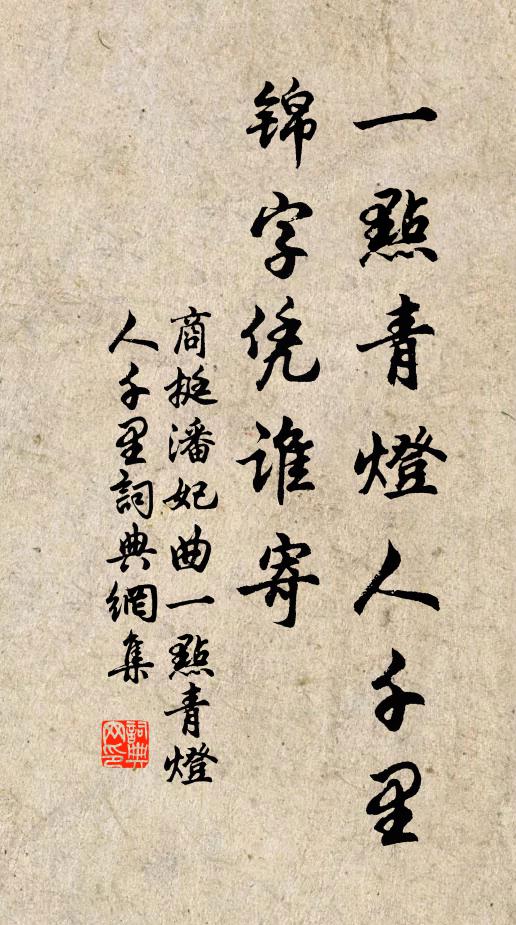 一點青燈人千里
锦字凭谁寄
商挺潘妃曲一點青燈
人千里詞典網集
詞典
网印